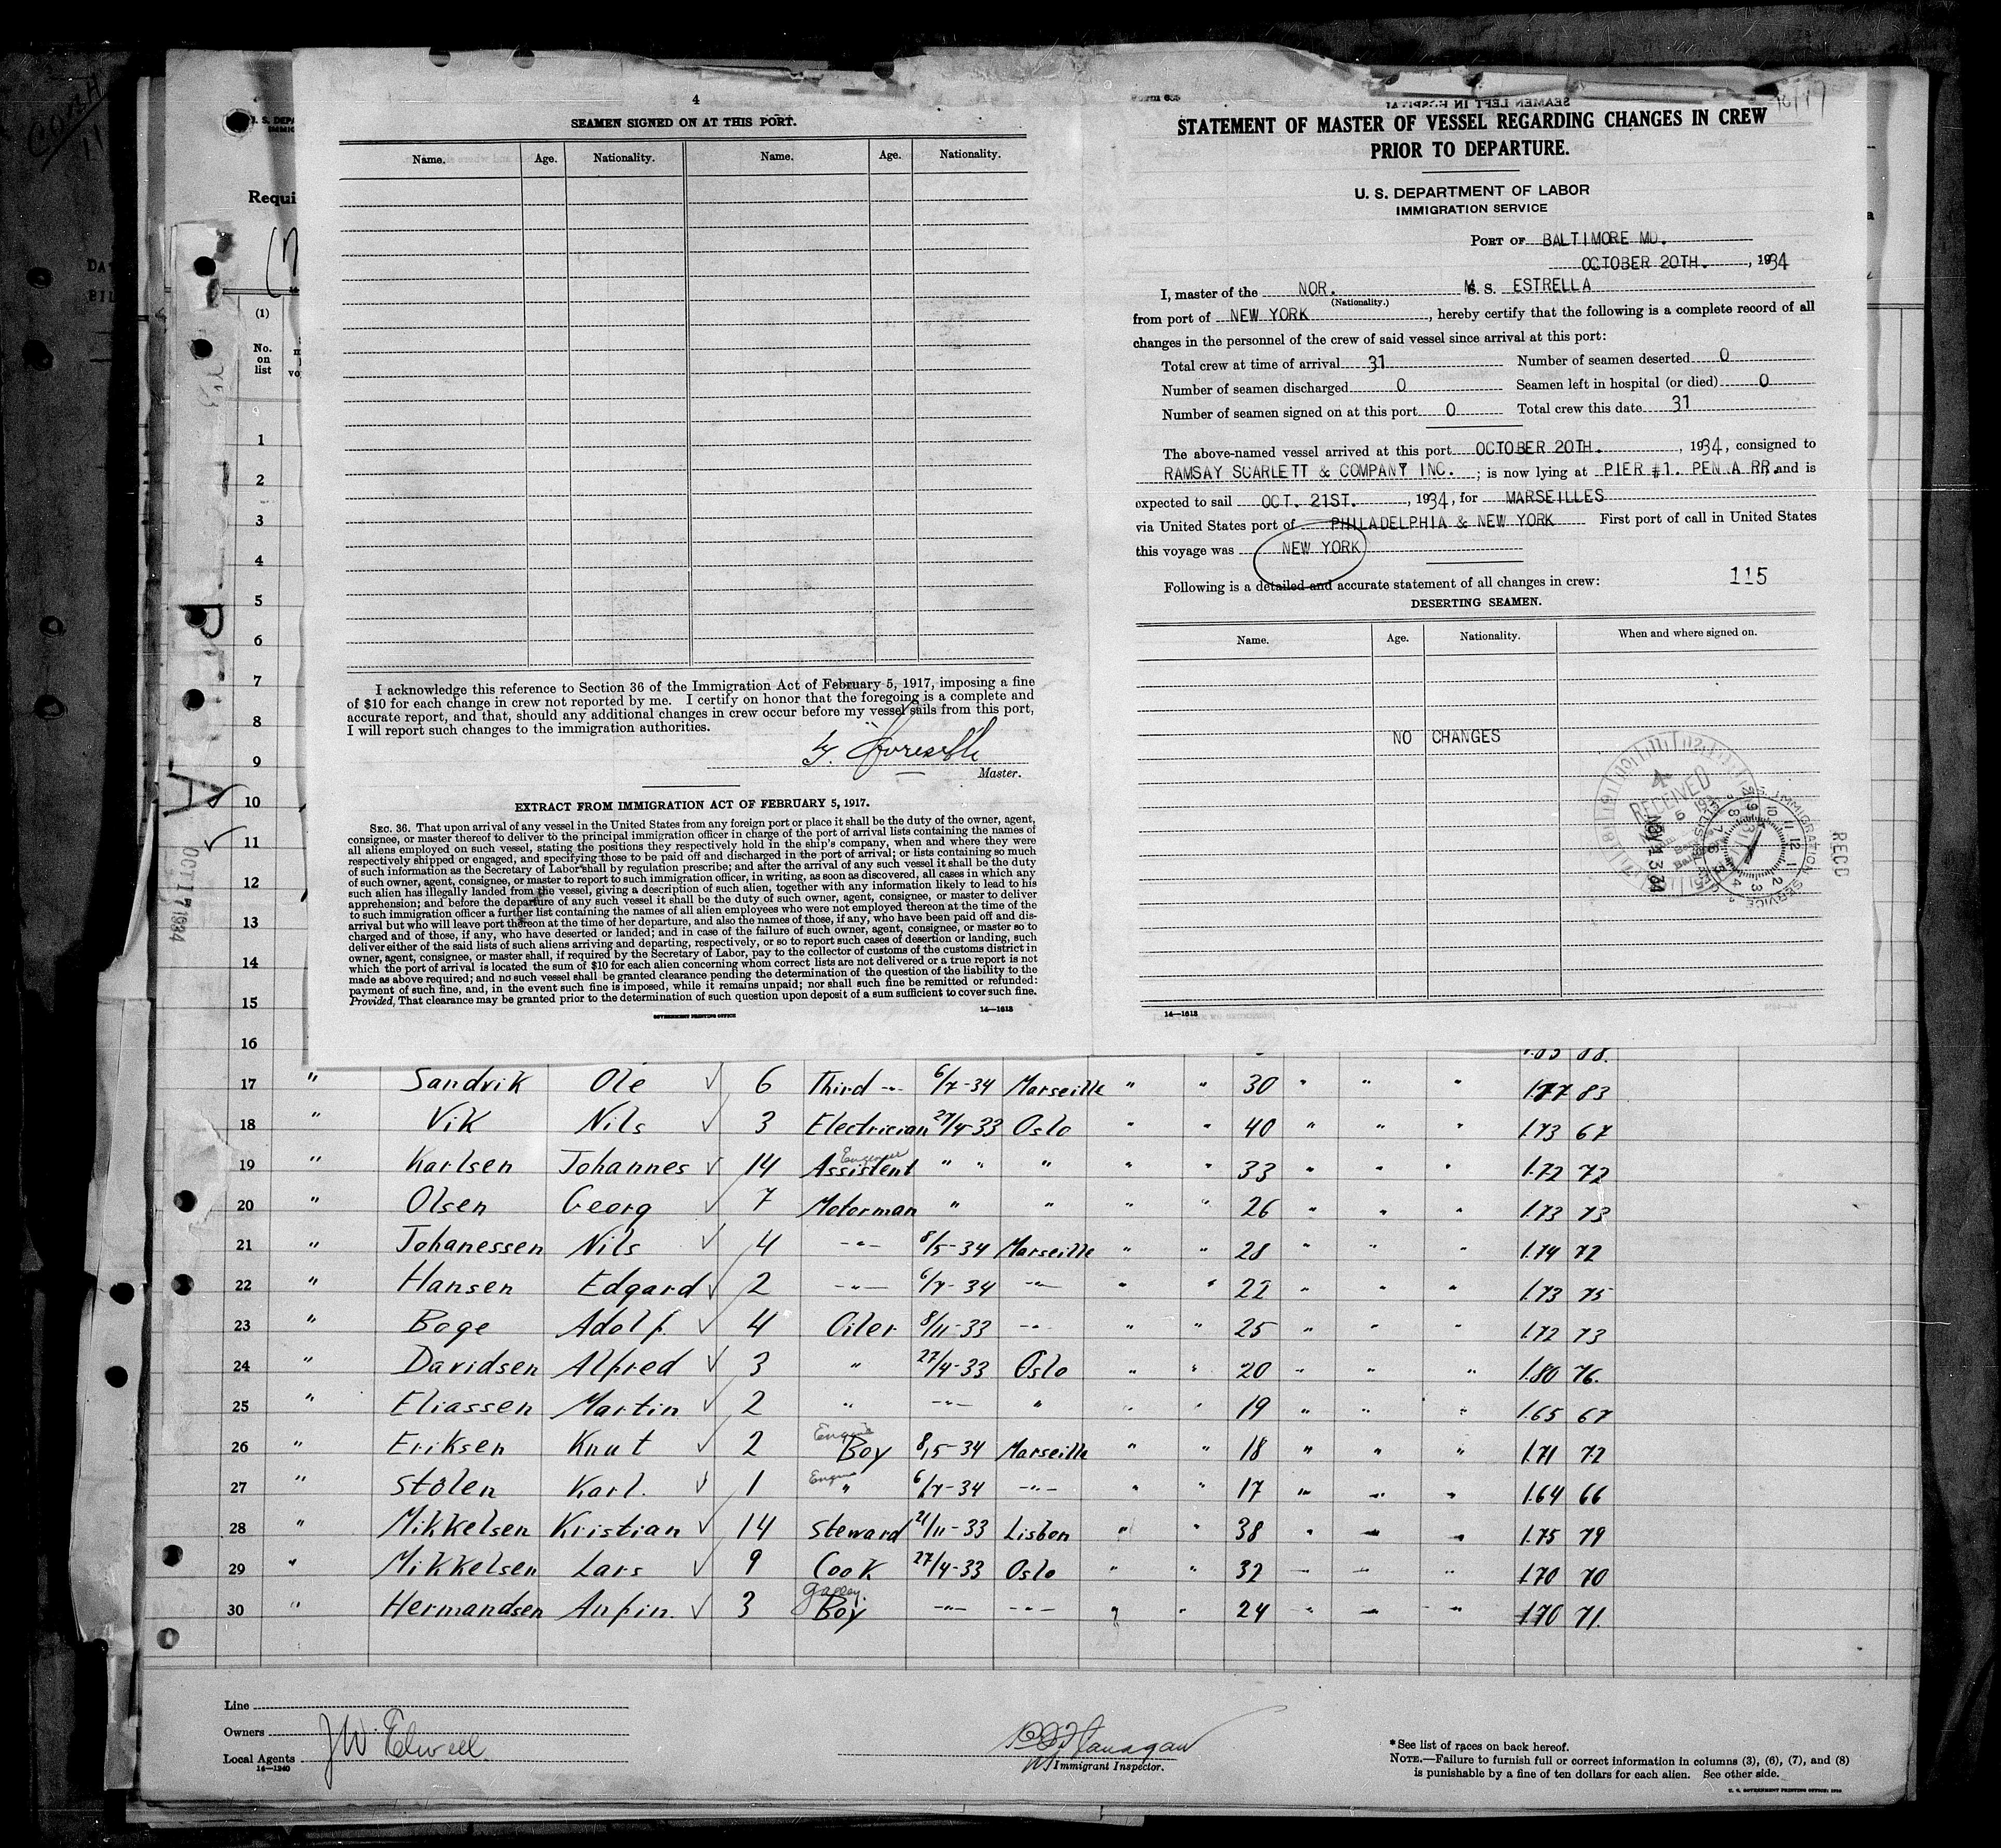 4
SEAMEN SIGNED ON AT THIS PORT.
Name. Age. Nationality. Name. Age. Nationality.
I acknowledge this reference to Section 36 of the Immigration Act of February 5, 1917, imposing a fine
of $10 for each change in crew not reported by me. I certify on honor that the foregoing is a complete and
accurate report, and that, should any additional changes in crew occur before my vessel sails from this port,
I will report such changes to the immigration authorities.
Master.
EXTRACT FROM IMMIGRATION ACT OF FEBRUARY 5, 1917.
SEC. 36. That upon arrival of any vessel in the United States from any foreign port or place it shall be the duty of the owner, agent,
consignee, or master thereof to deliver to the principal immigration officer in charge of the port of arrival lists containing the names of
all aliens employed on such vessel, stating the positions they respectively hold in the ship's company, when and where they were
respectively shipped or engaged, and specifying those to be paid off and discharged in the port of arrival; or lists containing so much
of such information as the Secretary of Labor shall by regulation prescribe; and after the arrival of any such vessel it shall be the duty
of such owner, agent, consignee, or master to report to such immigration officer, in writing, as soon as discovered, all cases in which any
such alien has illegally landed from the vessel, giving a description of such alien, together with any information likely to lead to his
apprehension; and before the departure of any such vessel it shall be the duty of such owner, agent, consignee, or master to deliver
to such immigration officer a further list containing the names of all alien employees who were not employed thereon at the time of the
arrival but who will leave port thereon at the time of her departure, and also the names of those, if any, who have been paid off and dis-
charged and of those, if any, who have deserted or landed; and in case of the failure of such owner, agent, consignee, or master so to
deliver either of the said lists of such aliens arriving and departing, respectively, or so to report such cases of desertion or landing, such
owner, agent, consignee, or master shall, if required by the Secretary of Labor, pay to the collector of customs of the customs district in
which the port of arrival is located the sum of $10 for each alien concerning whom correct lists are not delivered or a true report is not
made as above required; and no such vessel shall be granted clearance pending the determination of the question of the liability to the
payment of such fine, and, in the event such fine is imposed, while it remains unpaid; nor shall such fine be remitted or refunded:
Provided, That clearance may be granted prior to the determination of such question upon deposit of a sum sufficient to cover such fine.
GOVERNMENT PRINTING OFFICE 14—1613
STATEMENT OF MASTER OF VESSEL REGARDING CHANGES IN CREW
PRIOR TO DEPARTURE.
U. S. DEPARTMENT OF LABOR
IMMIGRATION SERVICE
PORT OF BALTIMORE MD.
OCTOBER 20TH. , 1934
I, master of the NOR. M. S. ESTRELLA
(Nationality.)
from port of NEW YORK , hereby certify that the following is a complete record of all
changes in the personnel of the crew of said vessel since arrival at this port:
Total crew at time of arrival 31 Number of seamen deserted 0
Number of seamen discharged 0 Seamen left in hospital (or died) 0
Number of seamen signed on at this port 0 Total crew this date 31
The above-named vessel arrived at this port OCTOBER 20TH. , 1934, consigned to
RAMSAY SCARLETT & COMPANY INC. ; is now lying at PIER #1. PENNA RR. and is
expected to sail OCT. 21ST. , 1934, for MARSEILLES
via United States port of PHILADELPHIA & NEW YORK First port of call in United States
this voyage was NEW YORK
Following is a detailed and accurate statement of all changes in crew: 115
DESERTING SEAMEN.
Name. Age. Nationality. When and where signed on.
NO CHANGES
RECEIVED
IMMIGRATION SERVICE
REC'D
14—1613
Requi
(1)
No.
on
list
1
2
3
4
5
6
7
8
9
10
11
12
13
14
15
16
OCT 17 1934
17 " Sandvik Ole ✓ 6 Third -"- 6/7-34 Marseille " " 30 " " " 1.77 83
18 " Vik Nils ✓ 3 Electrician 27/4-33 Oslo " " 40 " " " 1.73 67
19 " Karlsen Johannes ✓ 14 Engineer Assistent " " " " " 33 " " " 1.72 72
20 " Olsen Georg ✓ 7 Motorman " " " " 26 " " " 1.73 73
21 " Johanessen Nils ✓ 4 -"- 8/5-34 Marseille " " 28 " " " 1.74 72
22 " Hansen Edgard ✓ 2 -"- 6/7-34 -"- " " 22 " " " 1.73 75
23 " Boge Adolf ✓ 4 Oiler 8/11-33 -"- " " 25 " " " 1.72 73
24 " Davidsen Alfred ✓ 3 " 27/4-33 Oslo " " 20 " " " 1.80 76.
25 " Eliassen Martin ✓ 2 " -"- " " " 19 " " " 1.65 67
26 " Eriksen Knut ✓ 2 Engine Boy 8/5-34 Marseille " " 18 " " " 1.71 72
27 " Stølen Karl. ✓ 1 Engine " 6/7-34 -"- " " 17 " " " 1.64 66
28 " Mikkelsen Kristian ✓ 14 Steward 21/11-33 Lisbon " " 38 " " " 1.75 79
29 " Mikkelsen Lars ✓ 9 Cook 27/4-33 Oslo " " 32 " " " 1.70 70
30 " Hermandsen Anfin. ✓ 3 Galley Boy -"- -"- " " 24 " " " 1.70 71.
Line
Owners
Local Agents J W. Elwell
14—1240
Immigrant Inspector.
*See list of races on back hereof.
NOTE.—Failure to furnish full or correct information in columns (3), (6), (7), and (8)
is punishable by a fine of ten dollars for each alien. See other side.